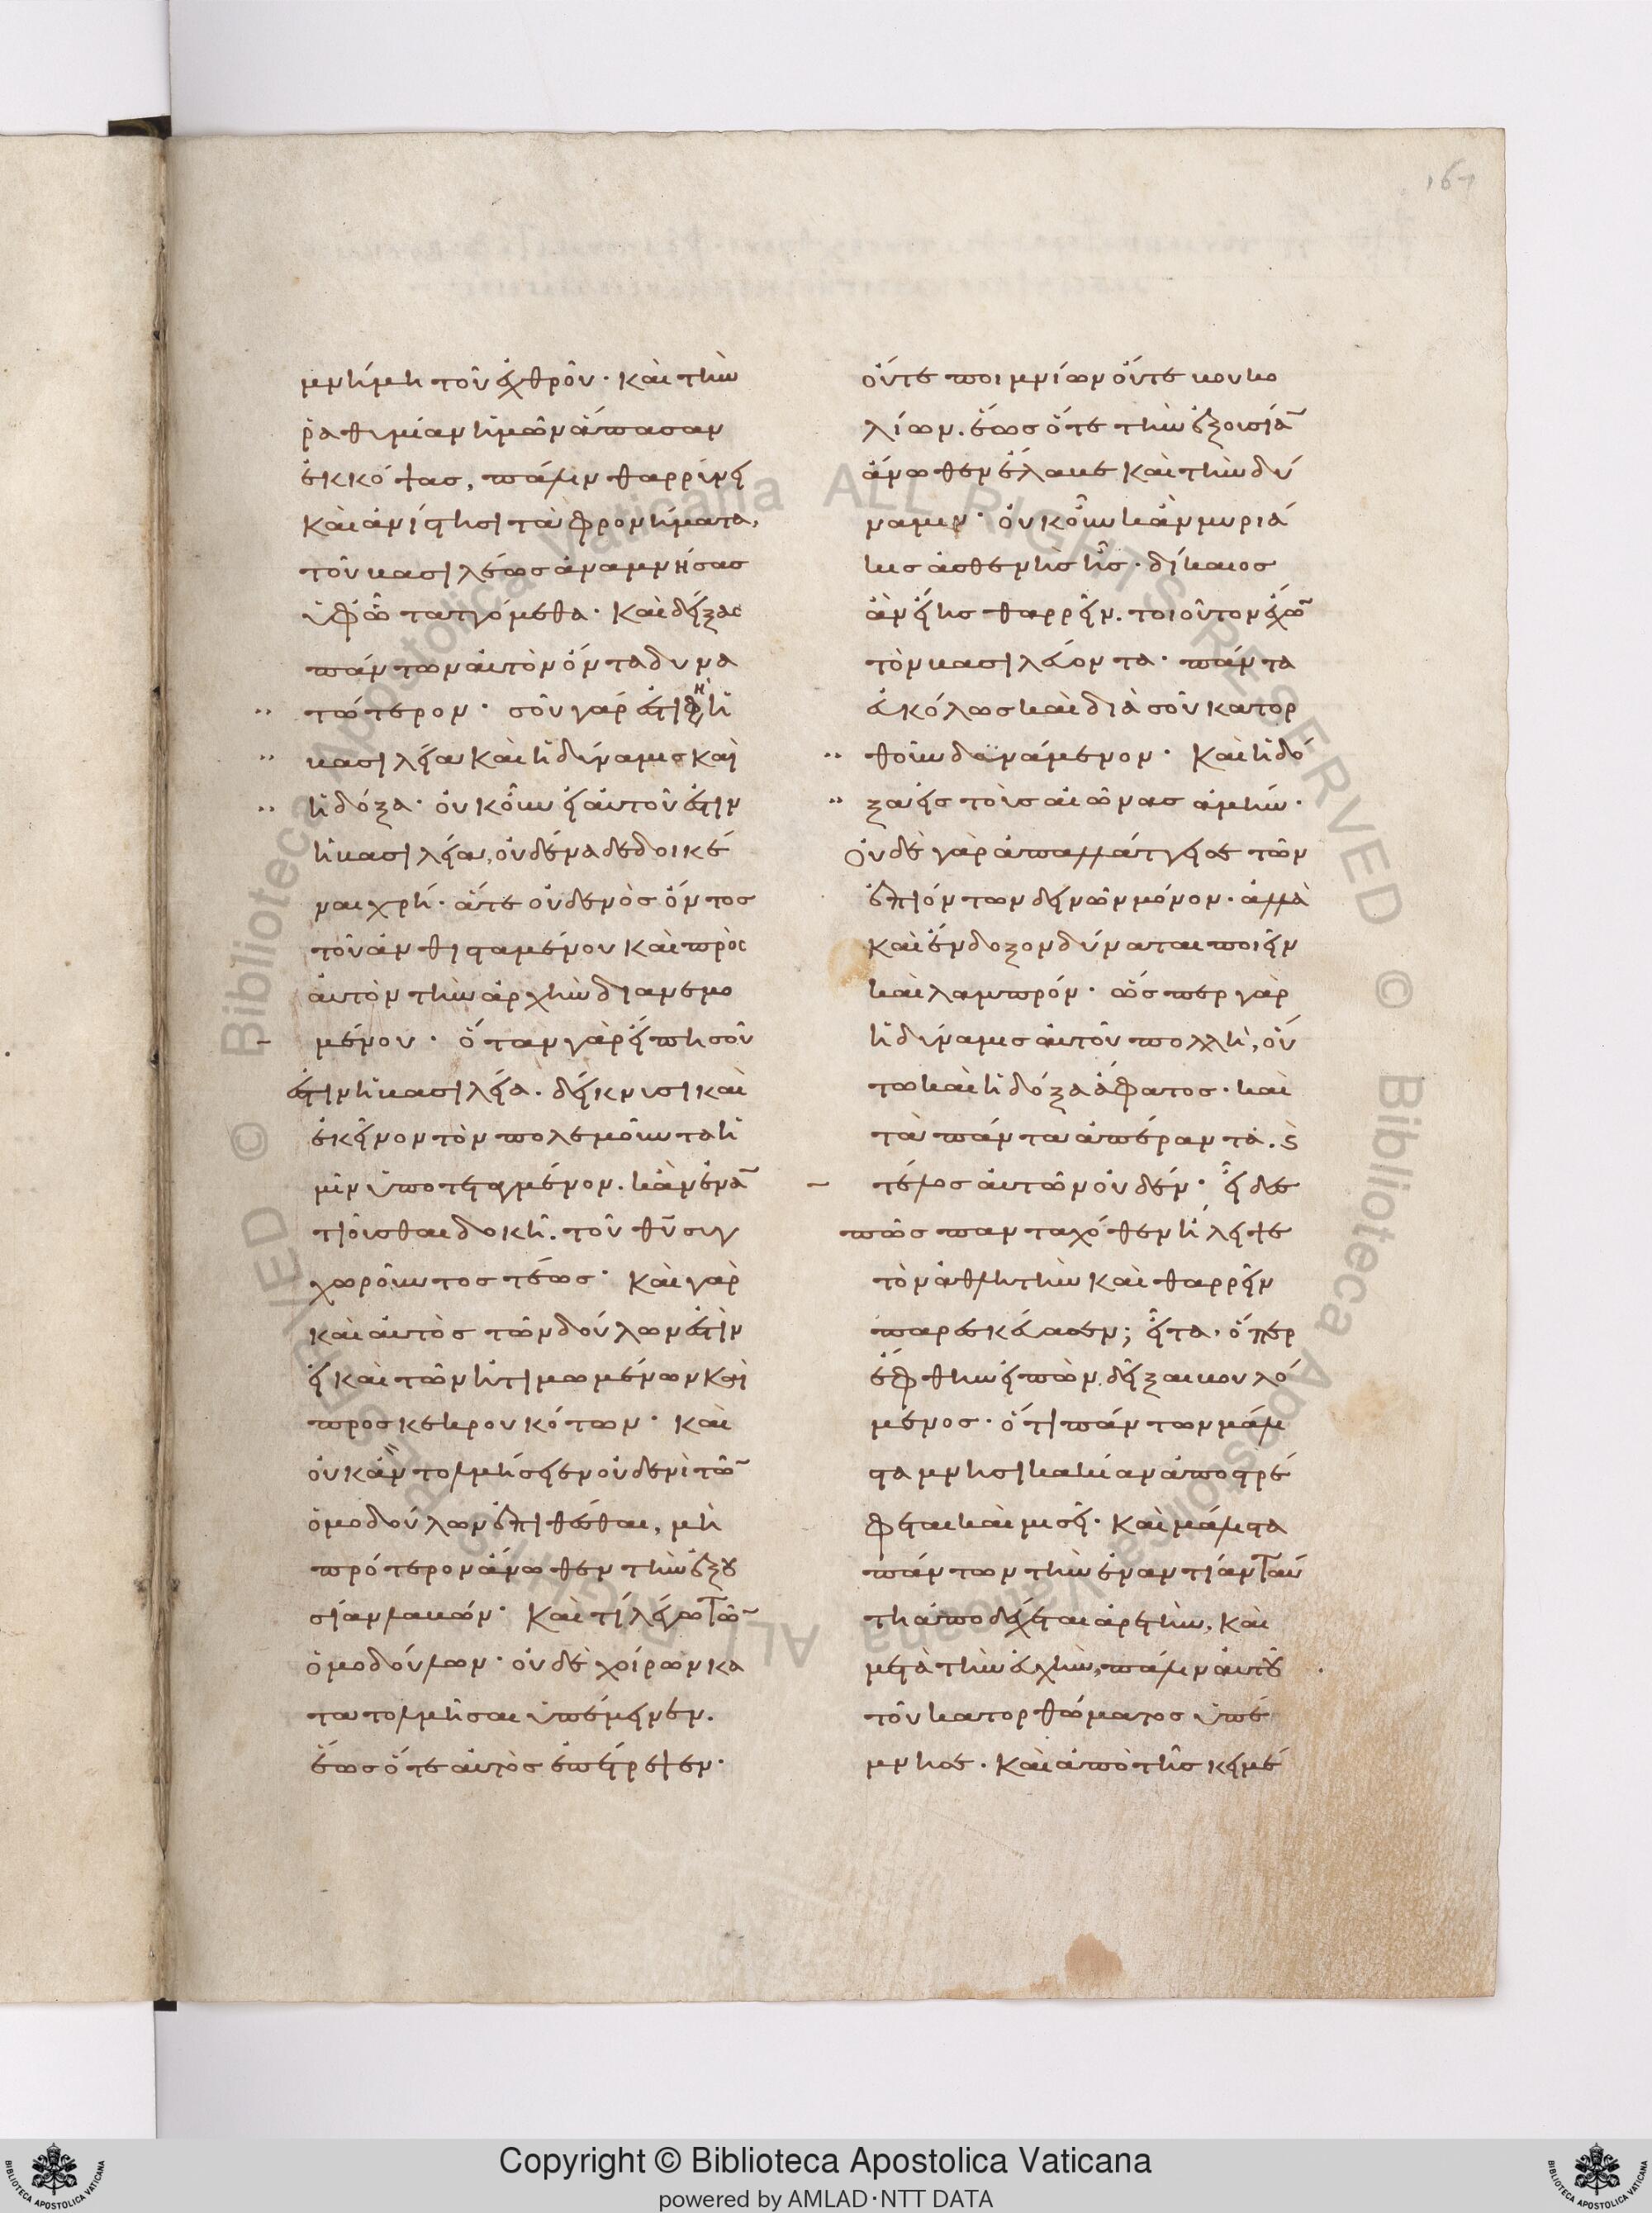 167
μνήμη τοῦ ἐχθροῦ· καὶ τὴν
ῥαθυμίαν ἡμῶν ἅπασαν
ἐκκόψας, πάλιν θαρρύνει
καὶ ἀνίστησι τὰ φρονήματα,
τοῦ βασιλέως ἀναμνήσας
ὑφ' ᾧ ταττόμεθα· καὶ δείξας
πάντων αὐτὸν ὄντα δυνα
τώτερον· σοῦ γάρ ἐστι φη ἡ
βασιλεία καὶ ἡ δύναμις καὶ
ἡ δόξα· οὐκοῦν εἰ αὐτοῦ ἐστιν
ἡ βασιλεία, οὐδένα δεδοικέ
ναι χρή· ἅτε οὐδενὸς ὄντος
τοῦ ἀνθισταμένου καὶ πρὸς
αὐτὸν τὴν ἀρχὴν διανεμο
μένου· ὅταν γὰρ εἴπη σοῦ
ἐστιν ἡ βασιλεία. δείκνυσι καὶ
ἐκεῖνον τὸν πολεμοῦντα ἡ
μῖν ὑποτεταγμένον. κἂν ἐναν
τιοῦσθαι δοκῆ. τοῦ θυ συγ
χωροῦντος τέως· καὶ γὰρ
καὶ αὐτὸς τῶν δούλων ἐστὶν
εἰ καὶ τῶν ἠτιμωμένων καὶ
προσκεκρουκότων· καὶ
οὐκ ἂν τολμήσειεν οὐδενὶ τῶν
ὁμοδούλων ἐπιθέσθαι, μὴ
πρότερον ἄνωθεν τὴν ἐξου
σίαν λαβών· καὶ τί λέγω τῶν
ὁμοδούλων· οὐδὲ χοίρων κα
τατολμῆσαι ὑπέμεινεν.
ἕως ὅτε αὐτὸς ἐπέτρεψεν·
οὔτε ποιμνίων οὔτε βουκο
λίων. ἕως ὅτε τὴν ἐξουσίαν
ἄνωθεν ἔλαβε καὶ τὴν δύ
ναμιν· οὐκοῦν κἂν μυριά
κις ἀσθενὴς ἦς· δίκαιος
ἂν εἴης θαρρεῖν. τοιοῦτον ἔχων
τὸν βασιλεύοντα· πάντα
εὐκόλως καὶ διὰ σοῦ κατορ
θοῦν δυνάμενον· καὶ ἡ δό
ξα εἰς τοὺς αἰῶνας ἀμήν·
Οὐδὲ γὰρ ἀπαλλάττει σε τῶν
ἐπιόντων δεινῶν μόνον· ἀλλὰ
καὶ ἔνδοξον δύναται ποιεῖν
καὶ λαμπρόν· ὥσπερ γὰρ
ἡ δύναμις αὐτοῦ πολλὴ, οὕ
τω καὶ ἡ δόξα ἄφατος· καὶ
τὰ πάντα ἀπέραντα. ϛ
τέλος αὐτῶν οὐδέν· εἶδες
πῶς πανταχόθεν ἤλειψε
τὸν ἀθλητὴν καὶ θαρρεῖν
παρεσκεύασεν; εἶτα, ὅπερ
ἔφθην εἰπὼν, δεῖξαι βουλό
μενος· ὅτι πάντων μάλι
στα μνησικακίαν ἀποστρέ
φεται καὶ μισεῖ· καὶ μάλιστα
πάντων τὴν ἐναντίαν ταύ
τη ἀποδέχεται ἀρετὴν, καὶ
μετὰ τὴν εὐχὴν, πάλιν αὐτοῦ
τοῦ κατορθώματος ὑπέ
μνησε. καὶ ἀπὸ τῆς κειμέ
Copyright © Biblioteca Apostolica Vaticana
powered by AMLAD·NTT DATA